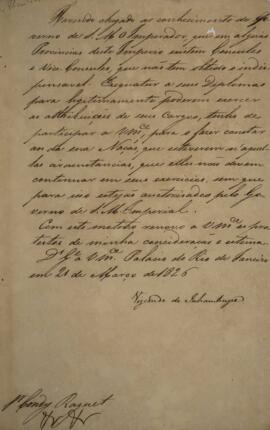 Havendo chegado ao conhecimento do Go-
verno de S. M. O Imperador, que em algumas
Provincias deste Imperio existem Consules
e Vice Consules, que não tem obtido o indis-
pensavel Exequatur a seus Diplomas
para legitimamente poderem exercer
as attribuições de seus Cargos, tenho de
participar a VMce, para o fazer constar
aos da sua Nação, que estiverem n'aquel-
las circunstancias, que elles não devem
continuar em seus exercicios, sem que
para isso estejão autorizados pelo Go-
verno de S. M. Imperial.
Com este motivo renovo a VMce os pro-
testos de minha consideração e estima.
Ds. Ge. a VMce. Palacio do Rio de Janeiro
em 21 de Março de 1826
Visconde de Inhambupe
Sr. Condy Raguet